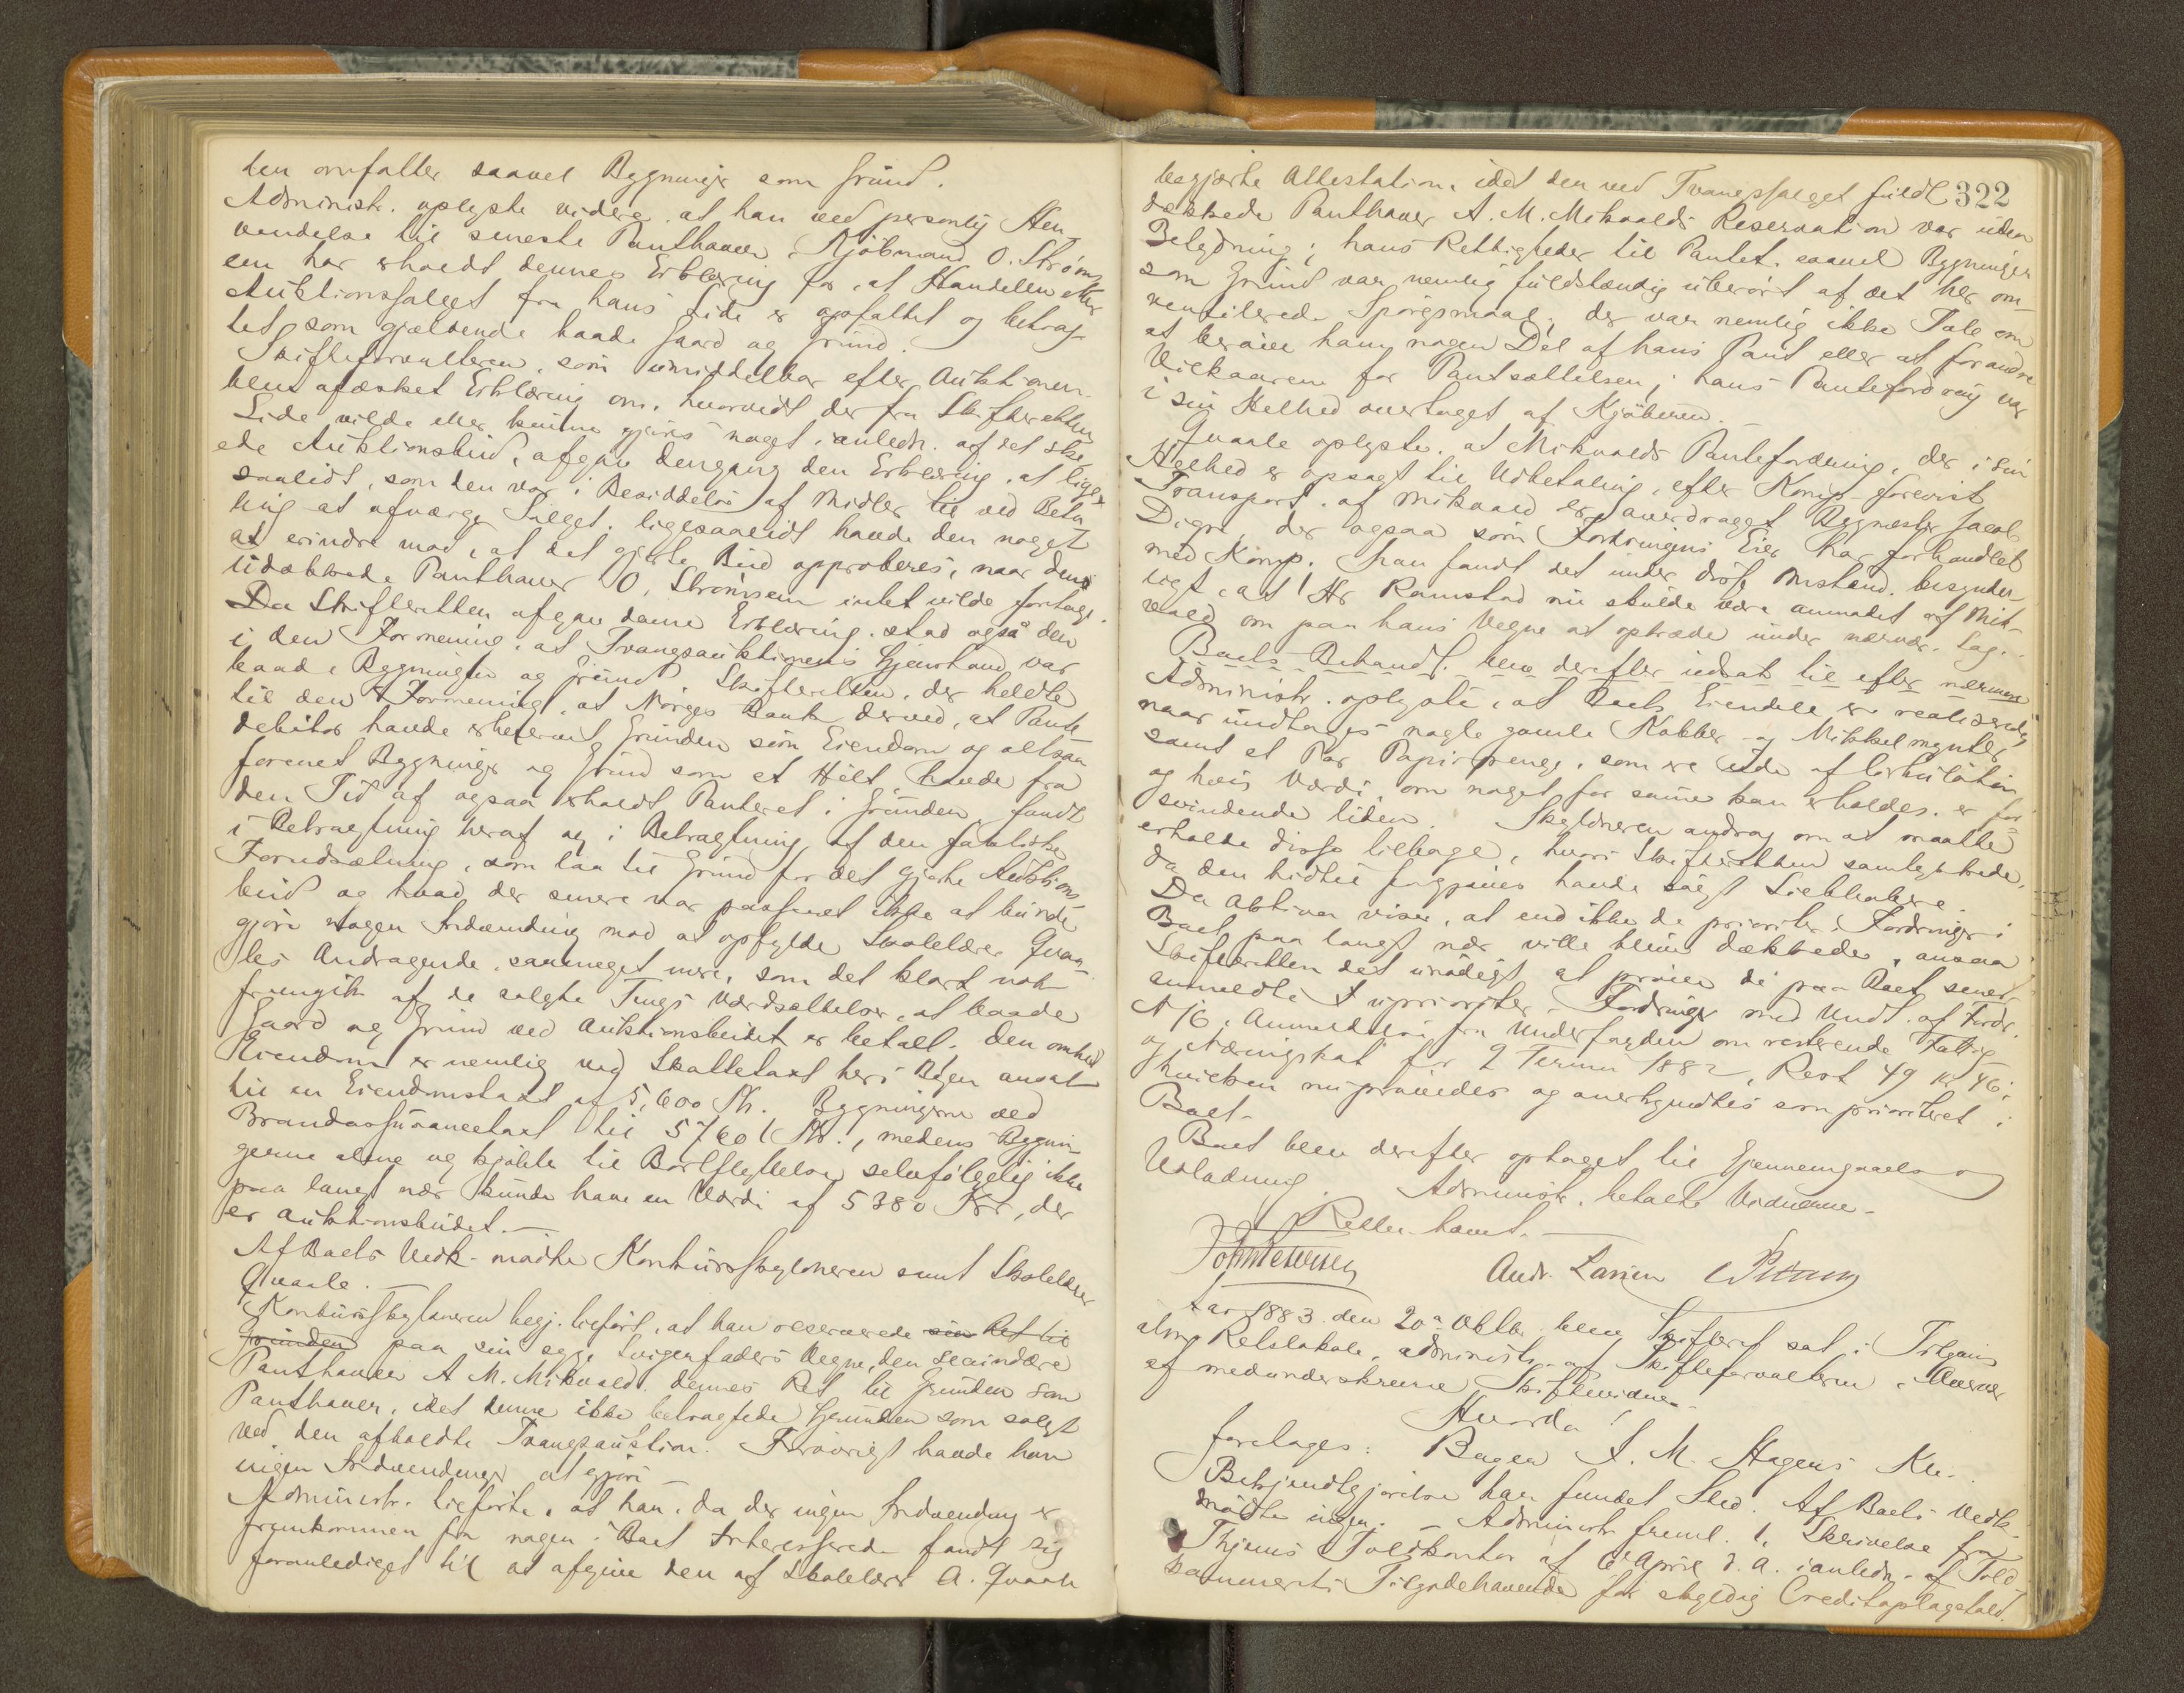 den omfatter saavel Bygninger som Grund.
Administr. oplyste videre, at han ved personlig Hen-
vendelse til seneste Panthaver, Kjøbmand O. Strøms-
sen har erholdt dennes Erklæring for, at Handelen efter
Auktionssalget fra hans Side er opfattet og betrag-
tet som gjældende baade Gaard og Grund.
Skifteforvalteren, som umiddelbar efter Auktionen
blev afæsket Erklæring om, hvorvidt der fra Skifterettens
Side vilde eller kunne gjøres noget i anledn. af det ske-
ede Auktionsbud, afgav dengang den Erklæring, at lige-
saalidt, som den var i Besiddelse af Midler til ved Beta-
ling at afværge Salget, ligesaalidt havde den noget
at erindre mod, at det gjorte Bud approberes, naar den
udækkede Panthaver O. Strømssen intet vilde foretage.
Da Skifteretten afgav denne Erklæring, stod også den
i den Formening, at Tvangsauktionens Gjenstand var
baade Bygningen og Grund. Skifteretten, der heldte
til den Formening, at Norges Bank derved, at Pante-
debitor havde erhvervet Grunden som Eiendom og altsaa
forenet Bygninger og Grund som et Helt, havde fra
den Tid af ogsaa erholdt Panteret i Grunden, fandt
i Betragtning heraf og i Betragtning af den faktiske
Forudsætning, som laa til Grund for det gjorte Auktions-
bud og hvad der senere var passeret ikke at burde
gjøre nogen Indvending mod at opfylde Skolelærer Qvaa-
les Andragende, saameget mere, som det klart nok
fremgik af de solgte Tings Værdsættelser, at baade
Gaard og Grund ved Auktionsbudet er betalt. Den omhdl.
Eiendom er nemlig ved Skattetaxt her i Byen ansat
til en Eiendomstaxt af 5,600 Kr. Bygningerne ved
Brandassurancetaxt til 5760 Kr., medens Bygnin-
gerne alene og kjøbte til Bortflyttelse selvfølgelig ikke
paa langt nær kunde have en Værdi af 5380 Kr, der
er auktionsbudet.
Af Boets Vedk. mødte Konkursskyldneren samt Skolelærer
Qvaale.
Konkursskyldneren begj. tilført, at han reserverede sin Ret til
Grunden paa sin egen Svigerfaders Vegne, den secundære
Panthaver A. M. Mikvold, dennes Ret til Grunden som
Panthaver, idet denne ikke betragtede Grunden som solgt
ved den afholdte Tvangsauktion. Forøvrigt havde han
ingen Indvendinger at gjøre.
Administr. tilførte, at han, da der ingen Indvending er
fremkommen fra nogen i Boet Interesserede fandt sig
foranlediget til at afgive den af Skolelærer A. Qvaale
322
begjærte Attestation, idet den ved Tvangssalget fuldt
dækkede Panthaver A. M. Mikvolds Reservation var uden
Betydning; hans Rettigheder til Pantet, saavel Bygninger
som Grund var nemlig fuldstændig uberørt af det her om-
ventilerede Spørgsmaal, der var nemlig ikke Tale om
at berøve ham nogen Del af hans Pant eller at forandre
Vilkaarene for Pantsættelsen; hans Pantefordring var
i sin Helhed overtaget af Kjøberen.
Qvaale oplyste, at Mikvolds Pantefordring, der i sin
Helhed er opsagt til Udbetaling, efter Komp. forevist
Transport af Mikvold er overdraget Bygmester Jacob
Digre der ogsaa som Fordringens Eier har forhandlet
med Komp. Han fandt det under disse Omstænd. besynder-
ligt, at Hr Ramstad nu skulde være anmodet af Mik-
vold om paa hans Vegne at optræde under nærvær. Sag.
Boets Behandl. blev derefter udsat til efter nærmere
Administr. oplyste, at Boets Eiendele er realiserede,
naar undtages nogle gamle Kobber og Nikkelmynter
samt et Par Papirpenge, som ere ude af Cirkulation,
og hvis Værdi, om noget for samme kan erholdes, er for-
svindende liden. Skyldneren androg om at maatte
erholde disse tilbage, hvori Skifteretten samtykkede,
da den hidtil forgjæves havde søgt Liebhabere.
Da Aktiva viser, at end ikke de prioriter. Fordringer i
Boet paa langt nær ville blive dækkede, ansaa
Skifteretten det unødigt at prøve de paa Boet sener
anmeldte uprioriter. Fordringer med Undt. af Fordr.
N 16, Anmeldelse fra Underfogden om resterende Fattig-
og Næringskat for 2 Termin 1882, Rest 49 Kr 46,
hvilken nu prøvedes og anerkjendtes som prioriteret i
Boet.
Boet blev derefter optaget til Gjennemgaaelse og
Udlodning. Administr. betalte Vidnerne.
Retten hævet.
And. Larsen
Aar 1883 den 20de Oktbr. blev Skifteret sat i Tilgens
alm. Retslokale, administr. af Skifteforvalteren. Overvær.
af medunderskrevne Skiftevidner.
Hvorda!
foretages: Bager A. M. Hagens Kk.
Bekjendtgjørelse har fundet Sted. Af Boets Vedk.
mødte ingen. Administr. freml. 1. Skrivelse fra
Thjems Toldkontor af 6te April d. A. i anledn. af Told-
kammerets Tilgodehavende for skyldig Creditoplagstold.